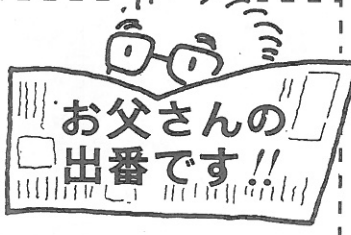 お父さんの
出番です!!